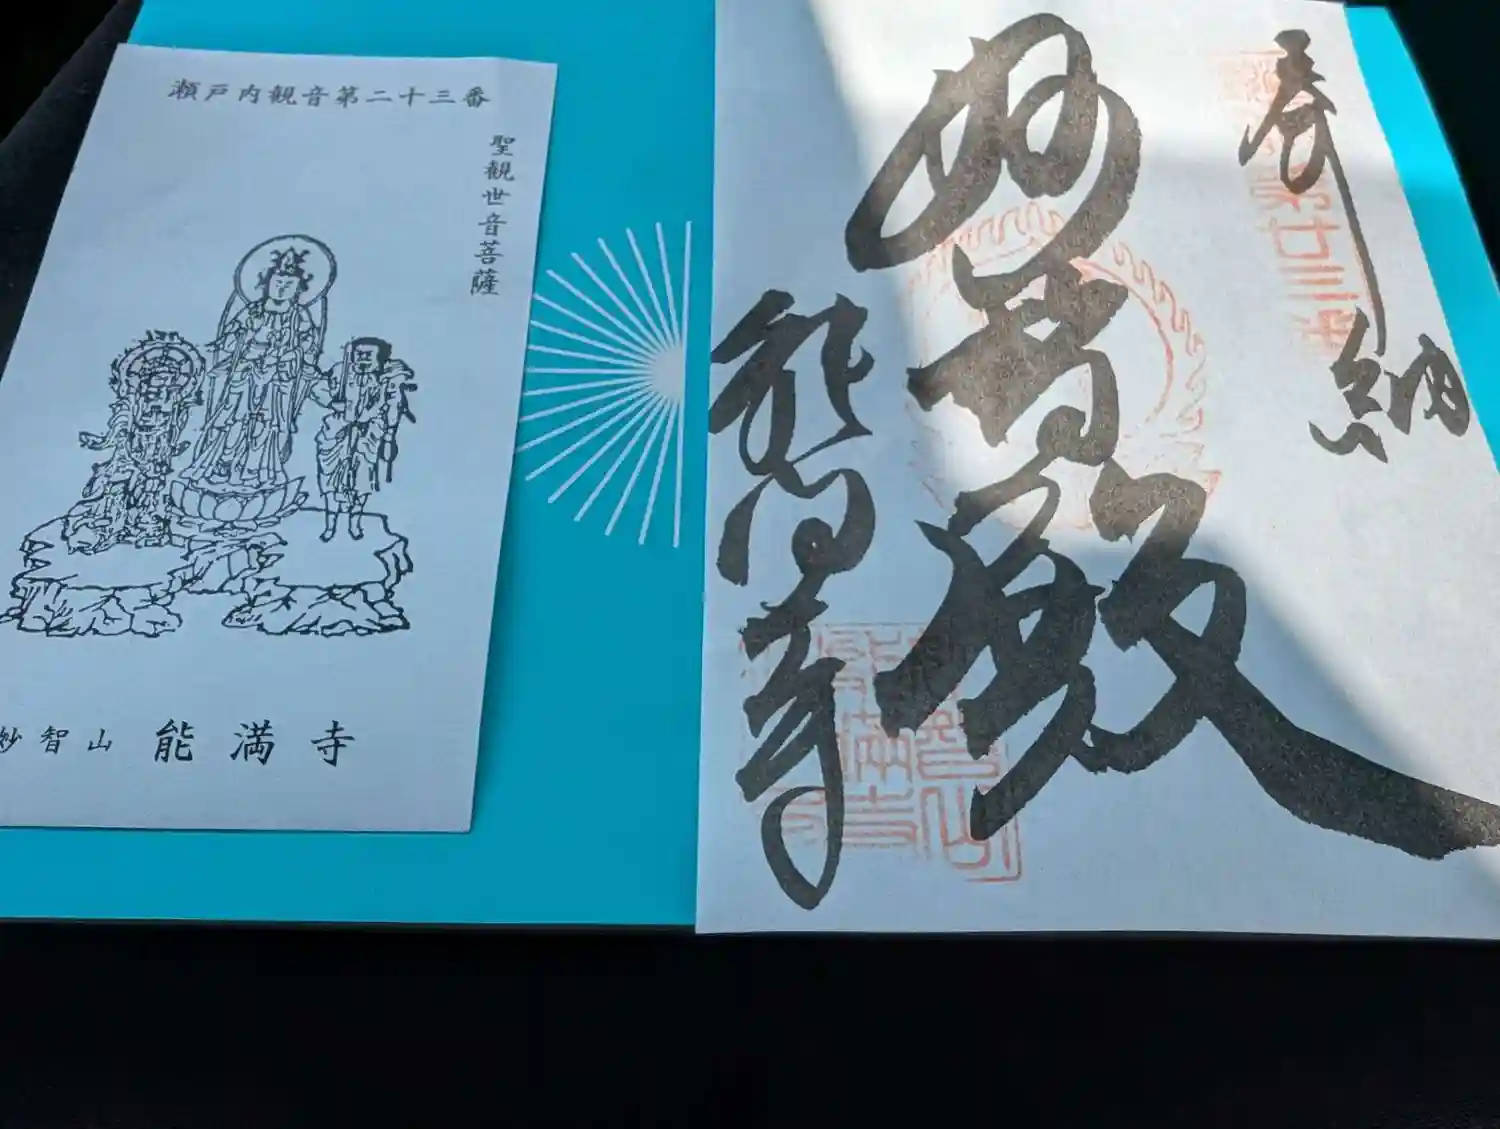 瀬戸内観音第二十三番
聖観世音菩薩
妙智山 能満寺
奉納
妙智殿
能満寺
第廿三番